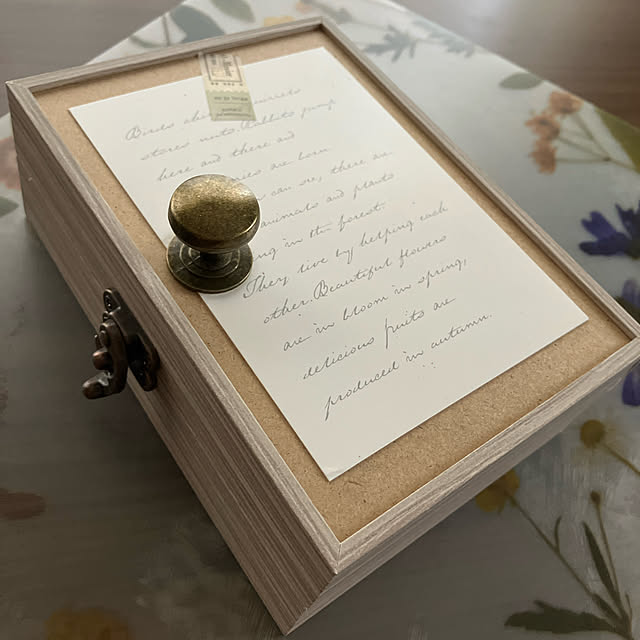 Birds
stores nuts. Rabbits jump
here and there and
are born
can see, there are
animals and plants
in the forest.
They live by helping each
other. Beautiful flowers
are in bloom in spring,
delicious fruits are
produced in autumn.